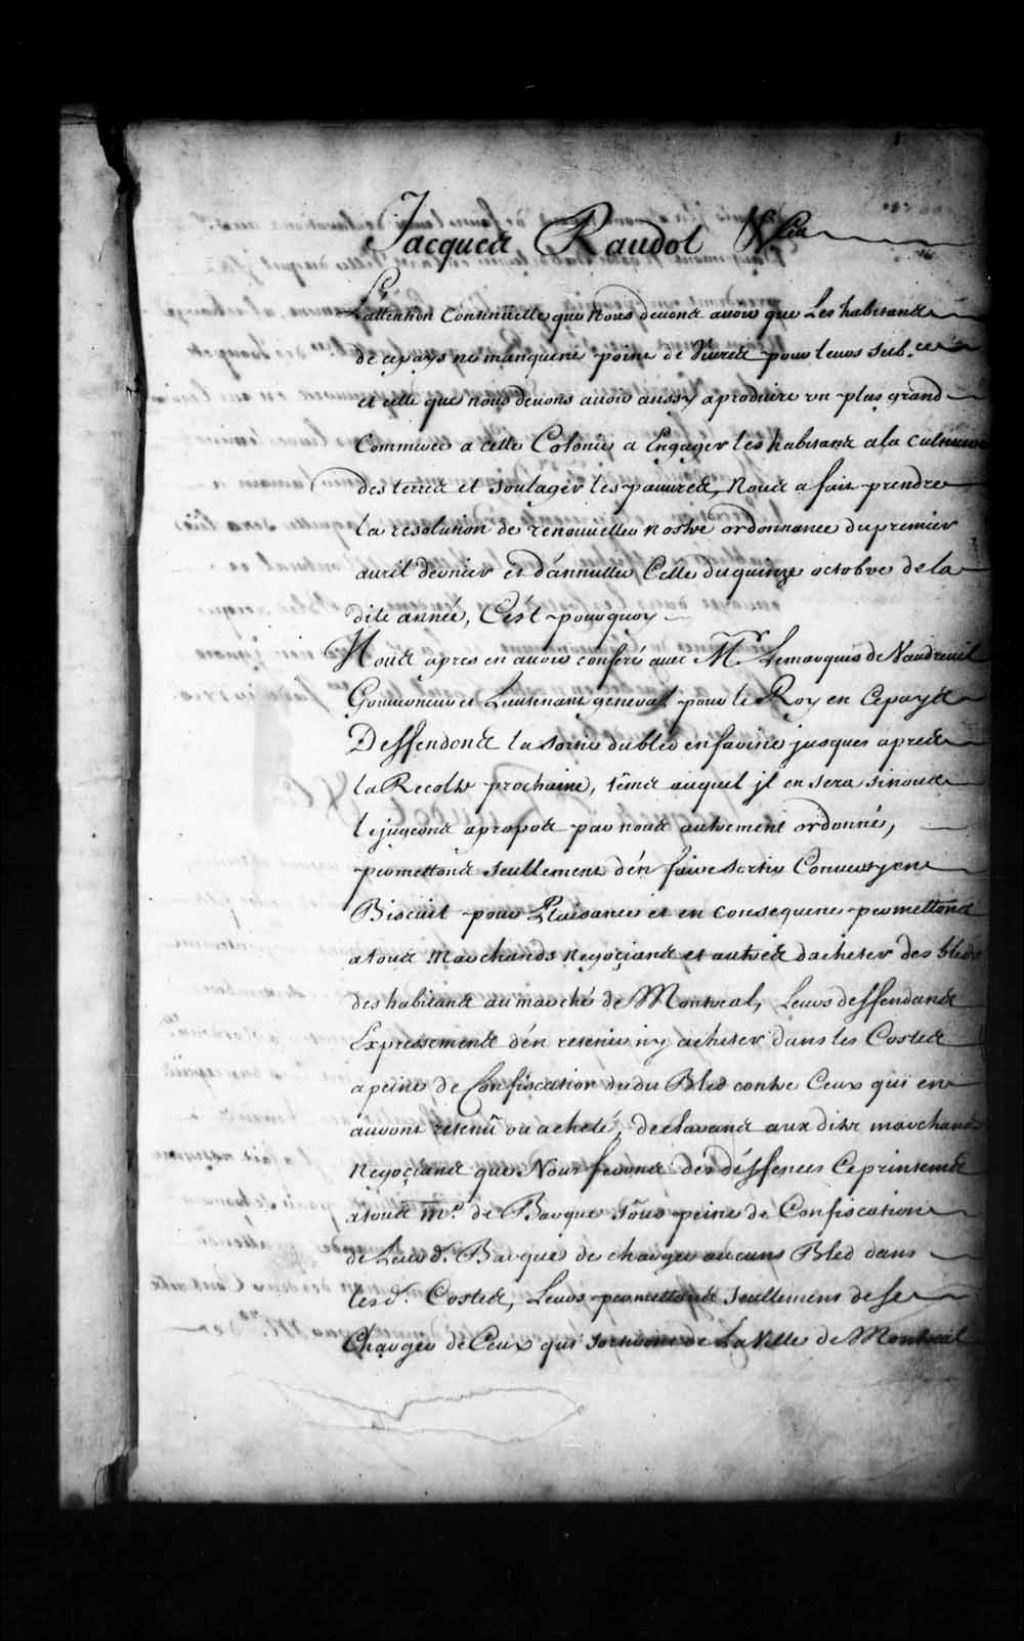 Jacques Raudot &c.
L'attention Continuelle que Nous devons avoir que Les habitans
de ce pays ne manquent point de vivres pour leurs sub.ce
et celle que nous devons avoir aussy a produire un plus grand
Commerce a cette Colonie a Engager les habitans a la culture
des terres et soulager les pauvres, Nous a fait prendre
la resolution de renouveller nostre ordonnance du premier
avril dernier et d'annuller Celle du quinze octobre de la
dite année, C'est pourquoy
Nous apres en avoir conferé avec Mr. Lemarquis de Vaudreuil
Gouverneur et Lieutenant general pour le Roy en Ce pays
Deffendons la sortie du bled en farine jusques apres
la Recolte prochaine, tems auquel jl en sera si nous
le jugeons a propos par nous autrement ordonné,
permettons seullement d'en faire sortir Converty en
Biscuit pour Plaisance et en consequence permettons
a tous Marchands negoçians et autres d'acheter des bleds
des habitans au marché de Montreal, Leurs deffendans
Expressement d'en retenir ny acheter dans les Costes
a peine de Confiscation dudit Bled contre Ceux qui en
auront retenû ou acheté, declarans aux dits marchands
Negoçians que Nous ferons des déffences Ce printems
a tous m.es de Barque sous peine de Confiscation
de Leurs d. Barques de charger aucuns Bled dans
les d. Costes, Leurs permettons seullement de se
Charger de Ceux qui sortiront de La Ville de Montreal